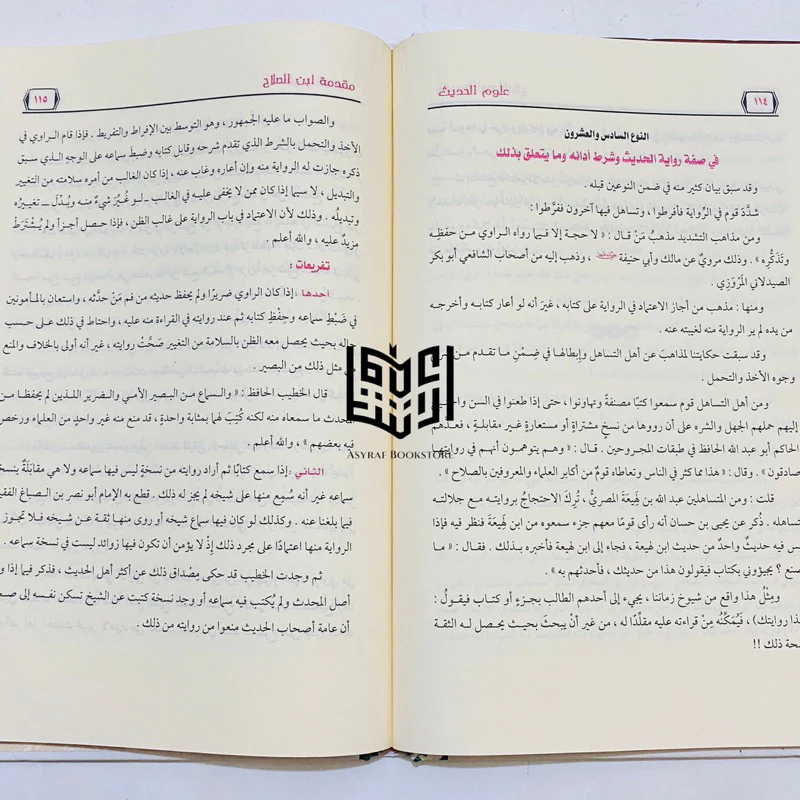 علوم الحديث
١١٤
النوع السادس والعشرون
في صفة رواية الحديث وشرط أدائه وما يتعلق بذلك
وقد سبق بيان كثير منه في ضمن النوعين قبله .
شدَّدَ قوم في الرِّواية فأفرطوا ، وتساهل فيها آخرون ففرَّطوا :
ومن مذاهب التشديد مذهبُ مَنْ قال : « لا حجة إلا فيما رواه الراوي من حفظِه
وتَذَكُّرِه » . وذلك مرويٌّ عن مالك وأبي حنيفة ، وذهب إليه من أصحاب الشافعي أبو بكر
الصيدلاني المَرْوَزِي .
ومنها : مذهب من أجاز الاعتماد في الرواية على كتابه ، غيرَ أنه لو أعار كتابَه وأخرجه
من يده لم ير الرواية منه لغيبته عنه .
وقد سبقت حكايتنا لمذاهبَ عن أهل التساهل وإبطالها في ضِمْنِ ما تقدم من
وجوه الأخذ والتحمل .
ومن أهل التساهل قوم سمعوا كتبًا مصنفةً وتهاونوا ، حتى إذا طعنوا في السن
إليهم حملهم الجهل والشره على أن رووها من نسخ مشتراةٍ أو مستعارةٍ غير مقابلة ، فعدهم
الحاكم أبو عبد الله الحافظ في طبقات المجروحين . قال : « وهم يتوهمون أنهم في روايتها
صادقون » . وقال : « هذا مما كثر في الناس وتعاطاه قومٌ من أكابر العلماء والمعروفين بالصلاح » .
قلت : ومن المتساهلين عبد الله بن لَهِيْعَة المصريُّ ، تُرِكَ الاحتجاجُ بروايته مع جلالته
لتساهله . ذُكر عن يحيى بن حسان أنه رأى قومًا معهم جزء سمعوه من ابن لَهِيْعَة فنظر فيه فإذا
ليس فيه حديثٌ واحدٌ من حديث ابن لهيعة ، فجاء إلى ابن لهيعة فأخبره بذلك . فقال : « ما
أصنع ؟ يجيؤوني بكتاب فيقولون هذا من حديثك ، فأحدثهم به » .
ومِثْلُ هذا واقع من شيوخ زماننا ، يجيء إلى أحدهم الطالب بجزءٍ أو كتاب فيقولُ :
هذا روايتك) ، فَيُمَكِّنُه مِنْ قراءته عليه مقلِّدًا له ، من غير أن يبحثَ بحيث يحصل له الثقة
بصحة ذلك !!
مقدمة ابن الصلاح
١١٥
والصواب ما عليه الجمهور ، وهو التوسط بين الإفراط والتفريط . فإذا قام الراوي في
الأخذ والتحمل بالشرط الذي تقدم شرحه وقابل كتابه وضبَطَ سماعه على الوجهِ الذي سبق
ذكره جازت له الرواية منه وإن أعاره وغاب عنه ، إذا كان الغالب من أمره سلامته من التغيير
والتبديل ، لا سيما إذا كان ممن لا يخفى عليه في الغالب ـ لو غُيِّرَ شيءٌ منه وبُدِّلَ ـ تغييرُه
وتبديلُه . وذلك لأن الاعتماد في باب الرواية على غالب الظن ، فإذا حصل أجزأ ولم يُشْتَرَطْ
مزيدٌ عليه ، والله أعلم .
تفريعات :
أحدها : إذا كان الراوي ضريرًا ولم يحفظ حديثه من فم مَنْ حدَّثه ، واستعان بالمأمونين
في ضَبْطِ سماعه وحِفْظِ كتابه ثم عند روايته في القراءة منه عليه ، واحتاط في ذلك على حسب
حاله بحيث يحصل معه الظن بالسلامة من التغيير صَحَّتْ روايته ، غير أنه أولى بالخلاف والمنع
من مثل ذلك من البصير .
قال الخطيب الحافظ : « والسماع من البصير الأمي والضرير اللذين لم يحفظا من
المحدث ما سمعاه منه لكنه كُتِبَ لهما بمثابة واحدةٍ ، قد منع منه غير واحدٍ من العلماء ورخص
فيه بعضهم » ، والله أعلم .
الثاني : إذا سمع كتابًا ثم أراد روايته من نسخةٍ ليس فيها سماعه ولا هي مقابَلَةٌ بنسخة
سماعه غير أنه سُمِع منها على شيخه لم يجز له ذلك . قطع به الإمام أبو نصر بن الصباغ الفقيه
فيما بلغنا عنه . وكذلك لو كان فيها سماع شيخه أو روى منها ثقة عن شيخه فلا تجوز
الرواية منها اعتمادًا على مجرد ذلك إذْ لا يؤمن أن تكون فيها زوائد ليست في نسخة سماعه .
ثم وجدت الخطيب قد حكى مِصْداق ذلك عن أكثر أهل الحديث ، فذكر فيما إذا وجد
أصل المحدث ولم يُكتب فيه سماعه أو وجد نسخة كتبت عن الشيخ تسكن نفسه إلى صحتها
أن عامة أصحاب الحديث منعوا من روايته من ذلك .
ASYRAF BOOKSTORE